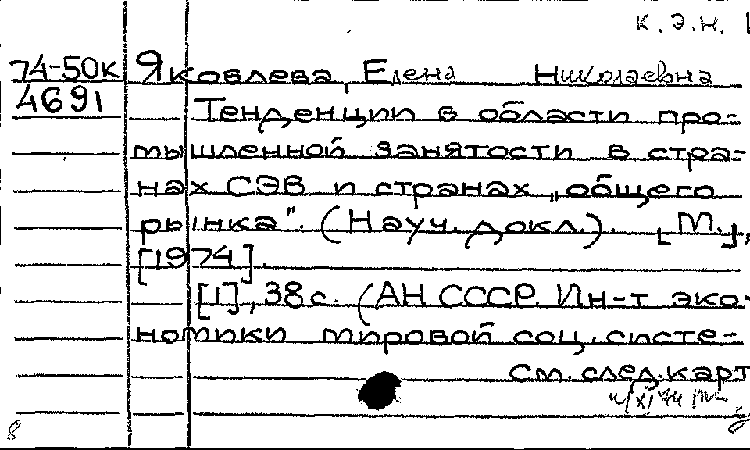 к.э.н.
74-50к Яковлева, Елена Николаевна
4691 Тенденции в области про-
мышленной занятости в стра-
нах СЭВ и странах „общего
рынка". (Науч. докл.). [М.],
[1974].
[1], 38 с. (АН СССР. Ин-т эко-
номики мировой соц. систе-
см. след. карт
8